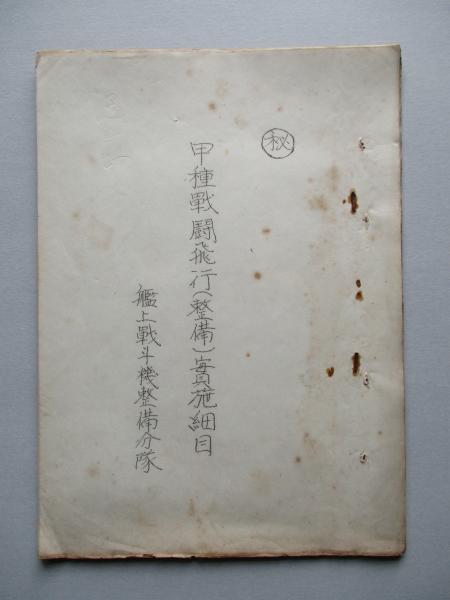 ㊙
甲種戰鬪飛行(整備)實施細目
艦上戰斗機整備分隊